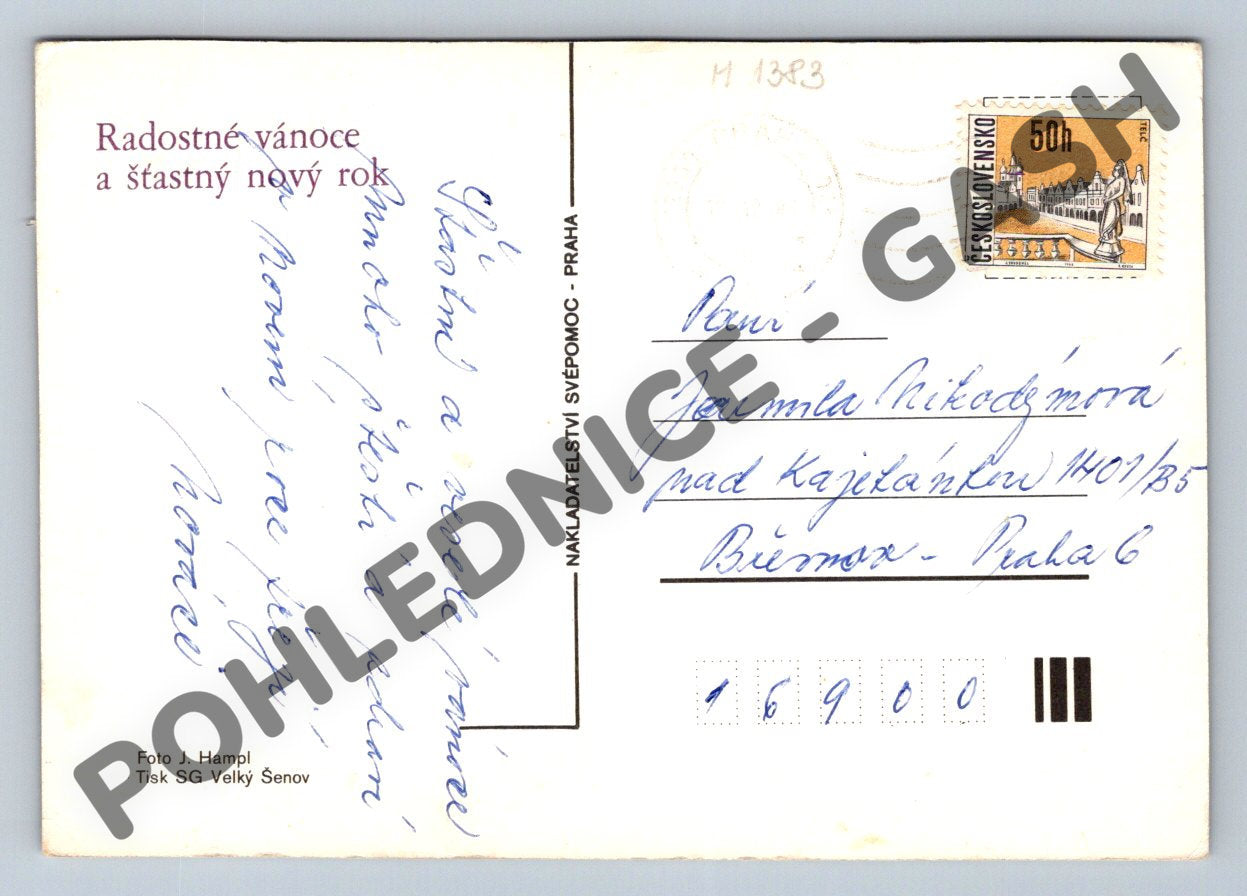 M 1383
Radostné vánoce
a šťastný nový rok
Šťastné a veselé vánoce
mnoho štěstí a zdraví
v Novém roce
NAKLADATELSTVÍ SVÉPOMOC - PRAHA
ČESKOSLOVENSKO
50h
TELČ
Paní
Jarmila Nikodýmová
nad Kajetánkou 1401/B5
Břevnov - Praha 6
16900
Foto J. Hampl
Tisk SG Velký Šenov
POHLEDNICE - GASH